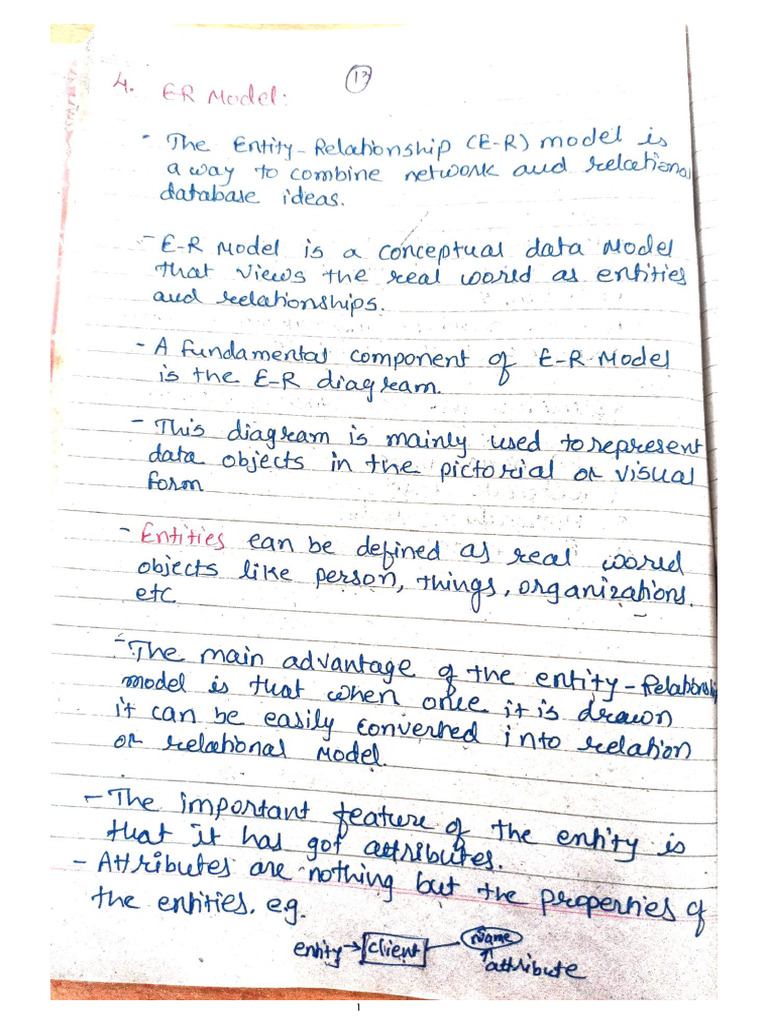 13
4. E-R Model:
- The Entity-Relationship (E-R) model is
a way to combine network and relational
database ideas.
- E-R Model is a conceptual data Model
that views the real world as entities
and relationships.
- A fundamental component of E-R Model
is the E-R diagram.
- This diagram is mainly used to represent
data objects in the pictorial or visual
form
- Entities can be defined as real world
objects like person, things, organizations.
etc
- The main advantage of the entity-Relationship
model is that when once it is drawn
it can be easily converted into relation
or relational Model.
- The important feature of the entity is
that it has got attributes.
- Attributes are nothing but the properties of
the entities. eg.
entity → client name
attribute
1